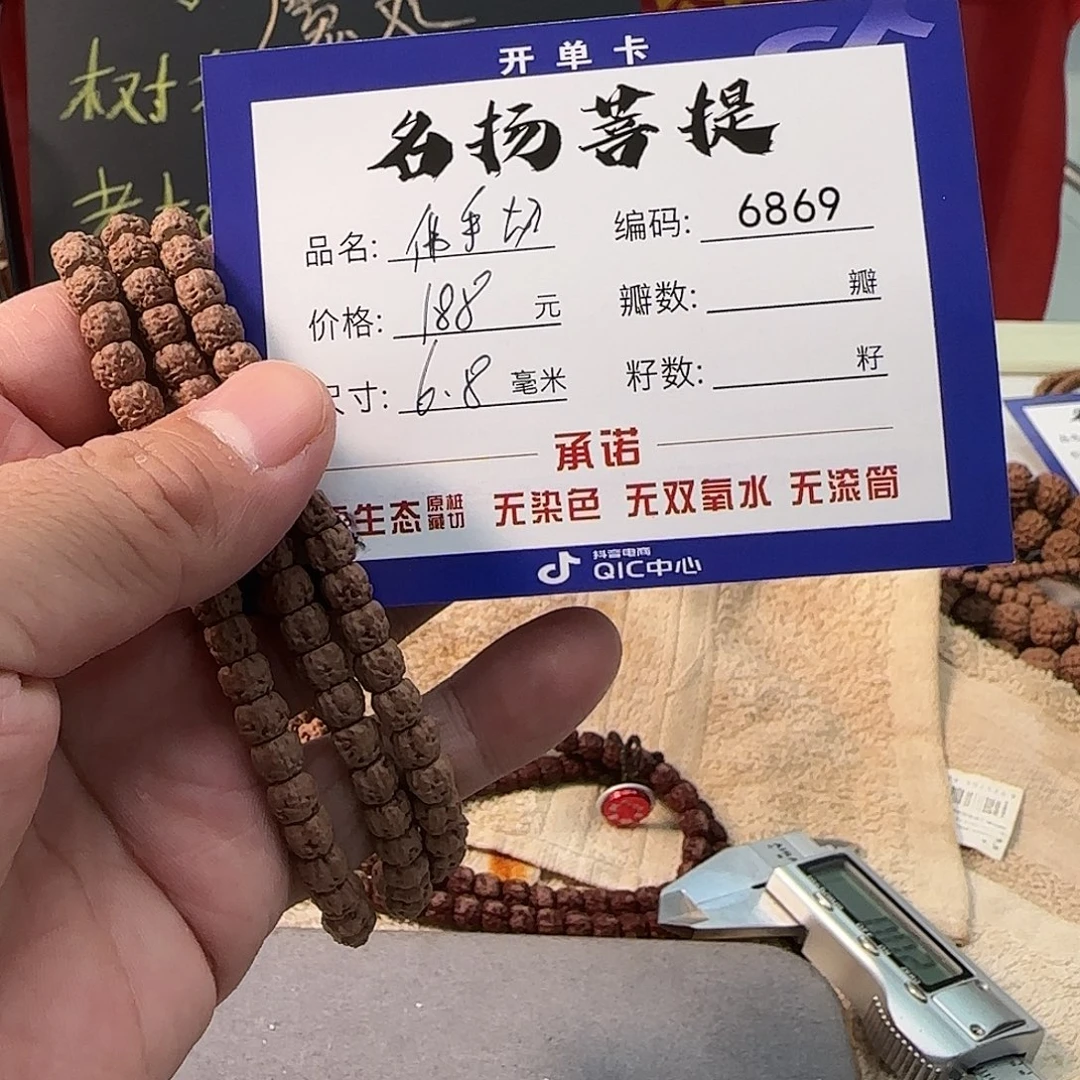 树
开单卡
名扬菩提
品名: 佛手切 编码: 6869
价格: 188 元 瓣数: 瓣
尺寸: 6.8 毫米 籽数: 籽
承诺
生态 原桩藏切 无染色 无双氧水 无滚筒
抖音电商
QIC中心